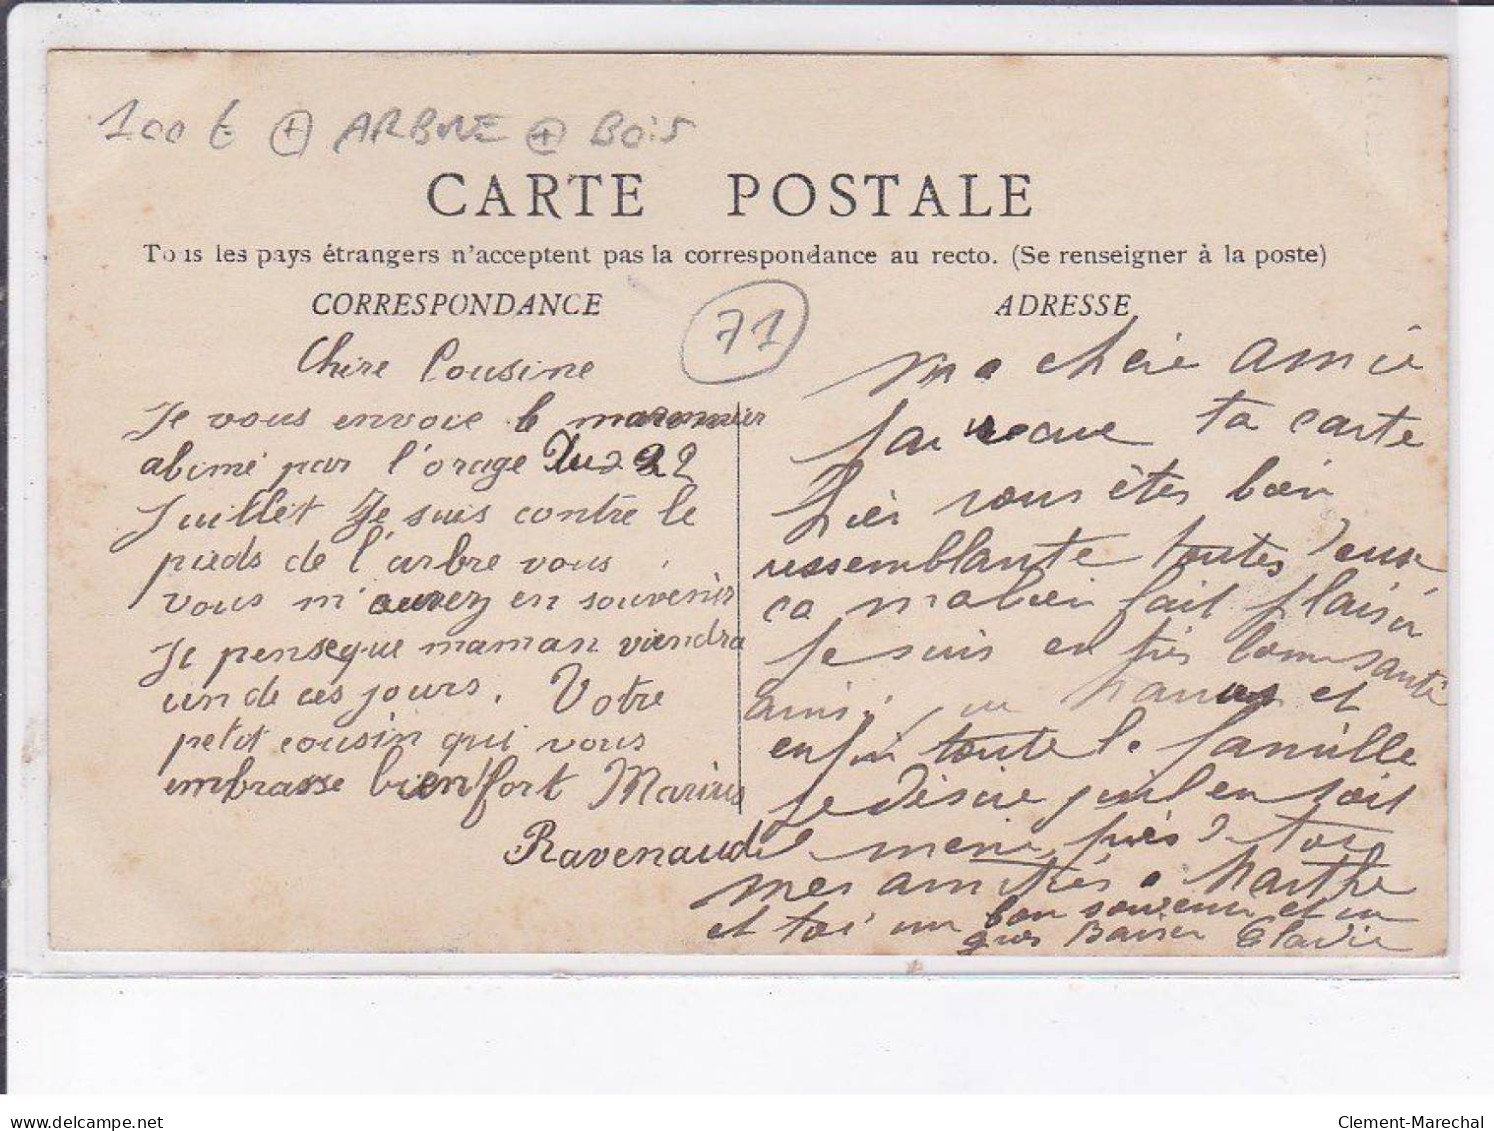 100 € + ARBRE + BOIS
CARTE POSTALE
Tous les pays étrangers n'acceptent pas la correspondance au recto. (Se renseigner à la poste)
CORRESPONDANCE
71
Chère Cousine
Je vous envoie le maronnier
abimé par l'orage Du 22
Juillet Je suis contre le
pieds de l'arbre vous
vous m'aurez en souvenirs
Je penseque maman viendra
un de ces jours. Votre
petit cousin qui vous
embrasse bien fort Marius
Ravenaud
ADRESSE
ma chère amie
Jai recue ta carte
hier vous êtes bien
ressemblante toutes deux
ca ma bien fait plaisir
Je suis en très bonne santé
ainsi que et
enfin toute la famille
Je désire qu'il en soit
de même près de toi
mes amitiés a Marthe
et toi un bon souvenir et un
gros Baiser Claudie
Clement-Marechal
www.delcampe.net